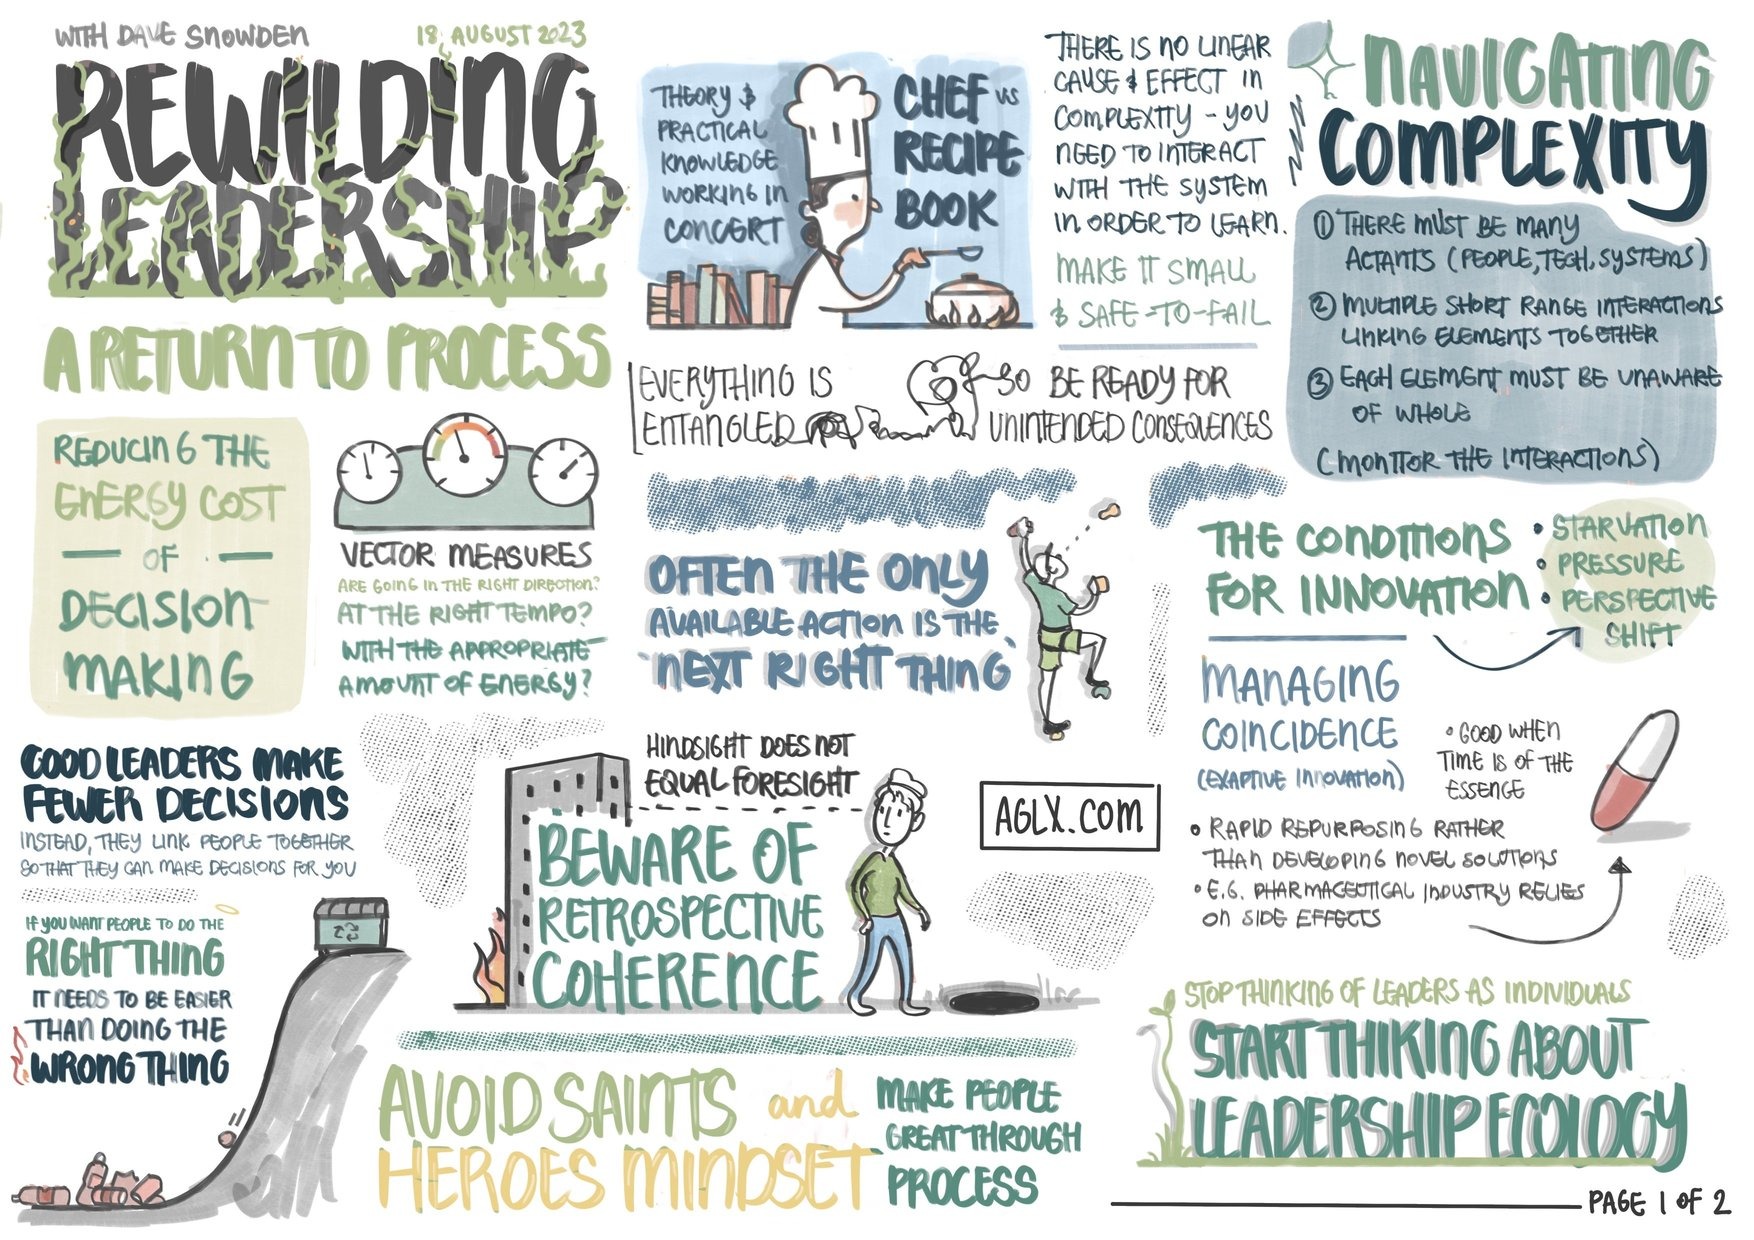 WITH DAVE SNOWDEN
18 AUGUST 2023
REWILDING
LEADERSHIP
A RETURN TO PROCESS
REDUCING THE
ENERGY COST
OF
DECISION
MAKING
VECTOR MEASURES
ARE GOING IN THE RIGHT DIRECTION?
AT THE RIGHT TEMPO?
WITH THE APPROPRIATE
AMOUNT OF ENERGY?
GOOD LEADERS MAKE
FEWER DECISIONS
INSTEAD, THEY LINK PEOPLE TOGETHER
SO THAT THEY CAN MAKE DECISIONS FOR YOU
IF YOU WANT PEOPLE TO DO THE
RIGHT THING
IT NEEDS TO BE EASIER
THAN DOING THE
WRONG THING
THEORY &
PRACTICAL
KNOWLEDGE
WORKING IN
CONCERT
CHEF VS
RECIPE
BOOK
THERE IS NO LINEAR
CAUSE & EFFECT IN
COMPLEXITY - YOU
NEED TO INTERACT
WITH THE SYSTEM
IN ORDER TO LEARN.
MAKE IT SMALL
& SAFE-TO-FAIL
EVERYTHING IS
ENTANGLED
SO BE READY FOR
UNINTENDED CONSEQUENCES
OFTEN THE ONLY
AVAILABLE ACTION IS THE
'NEXT RIGHT THING'
HINDSIGHT DOES NOT
EQUAL FORESIGHT
BEWARE OF
RETROSPECTIVE
COHERENCE
AGLX.COM
AVOID SAINTS and
HEROES MINDSET
MAKE PEOPLE
GREAT THROUGH
PROCESS
NAVIGATING
COMPLEXITY
① THERE MUST BE MANY
ACTANTS (PEOPLE, TECH, SYSTEMS)
② MULTIPLE SHORT RANGE INTERACTIONS
LINKING ELEMENTS TOGETHER
③ EACH ELEMENT MUST BE UNAWARE
OF WHOLE
(MONITOR THE INTERACTIONS)
THE CONDITIONS
FOR INNOVATION
• STARVATION
• PRESSURE
• PERSPECTIVE
SHIFT
MANAGING
COINCIDENCE
(EXAPTIVE INNOVATION)
• GOOD WHEN
TIME IS OF THE
ESSENCE
• RAPID REPURPOSING RATHER
THAN DEVELOPING NOVEL SOLUTIONS
• E.G. PHARMACEUTICAL INDUSTRY RELIES
ON SIDE EFFECTS
STOP THINKING OF LEADERS AS INDIVIDUALS
START THIKING ABOUT
LEADERSHIP ECOLOGY
PAGE 1 OF 2